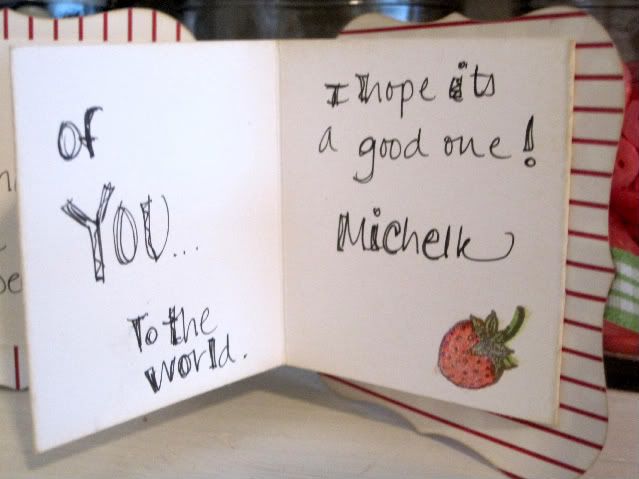 of
YOU...
To the
world.
I hope its
a good one!
Michelle